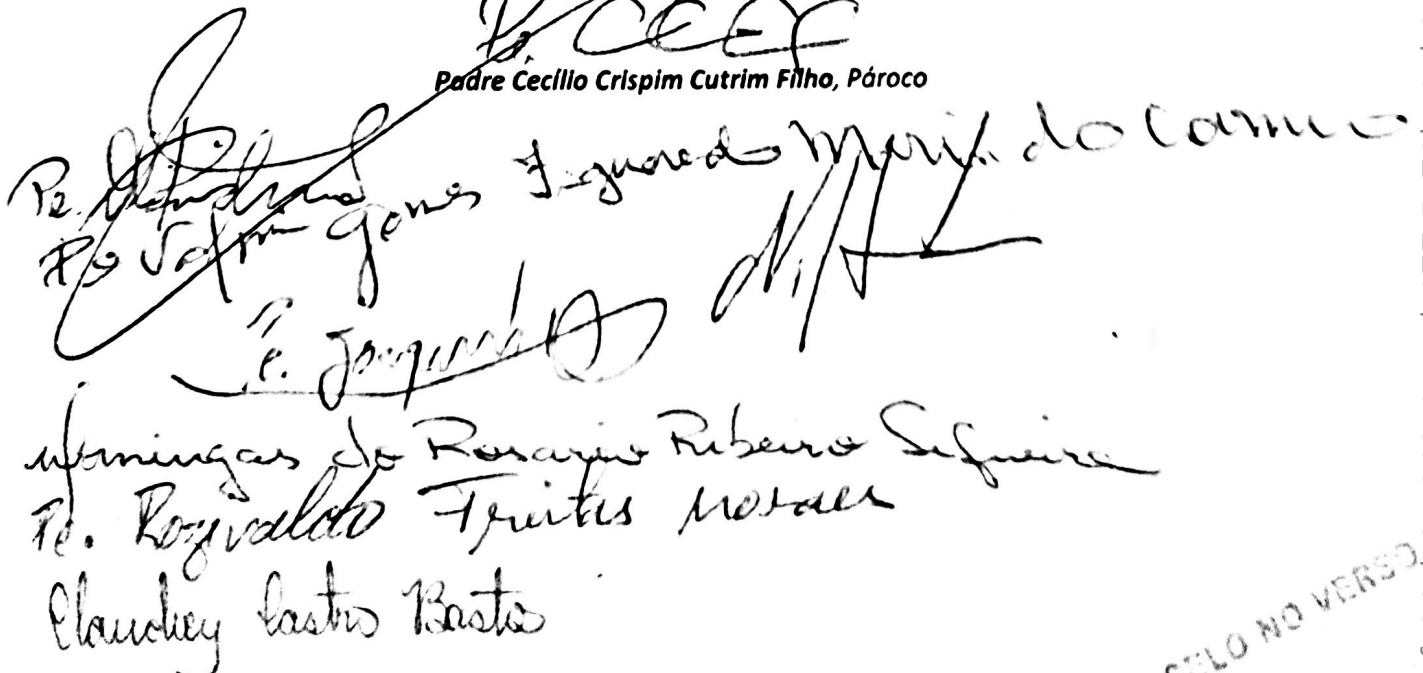 Pe. CCCF
Padre Cecílio Crispim Cutrim Filho, Pároco
Pe.
Pe Gomes Figueredo Maria do Carmo
Pe. Joaquim
Domingas do Rosario Ribeiro Sefueira
Pe. Rozivaldo Freitas Moraes
Claudiey Castro Bastos
SELO NO VERSO